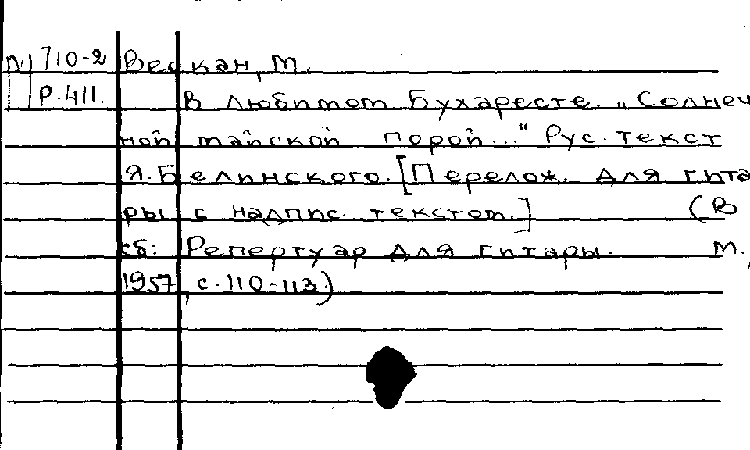 М 710-2 Вескан, М.
Р.411 В любимом Бухаресте. „Солнеч
ной майской порой..." Рус. текст
Я. Белинского. [Перелож. для гита
ры с надпис. текстом.] (В
сб: Репертуар для гитары. М.,
1957, с.110-113)